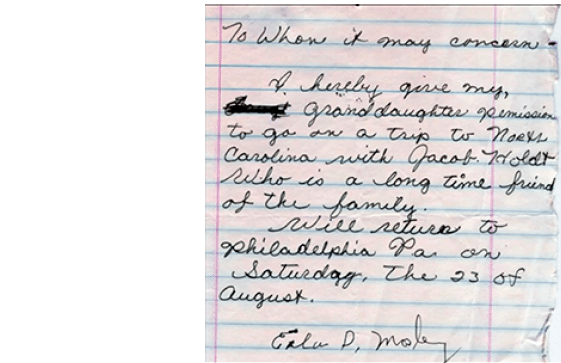 To Whon it may concern -
I hereby give my,
Granddaughter pemission
to go on a trip to North
Carolina with Jacob. Holdt
Who is a long time friend
of the family.
Will return to
philadelphia Pa on
Saturday, The 23 of
August.
D, Mosley